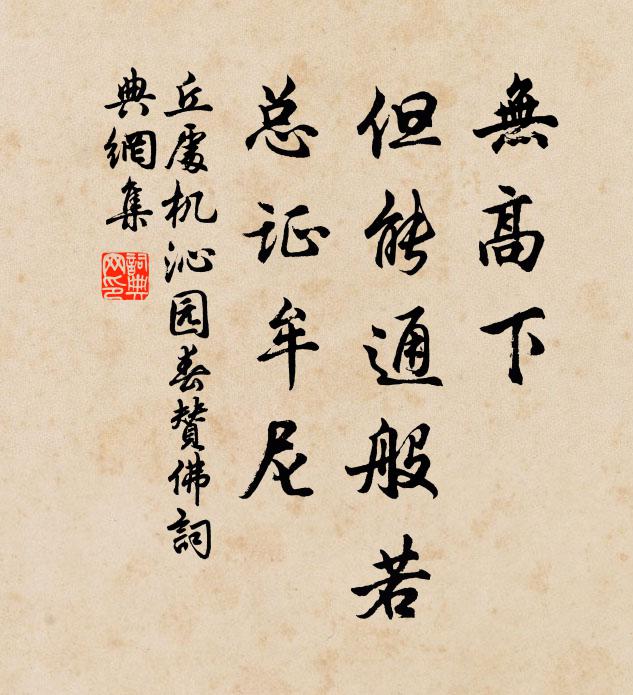 無高下
但能通般若
总证牟尼
丘處机沁园春赞佛詞
典網集
詞典
网印